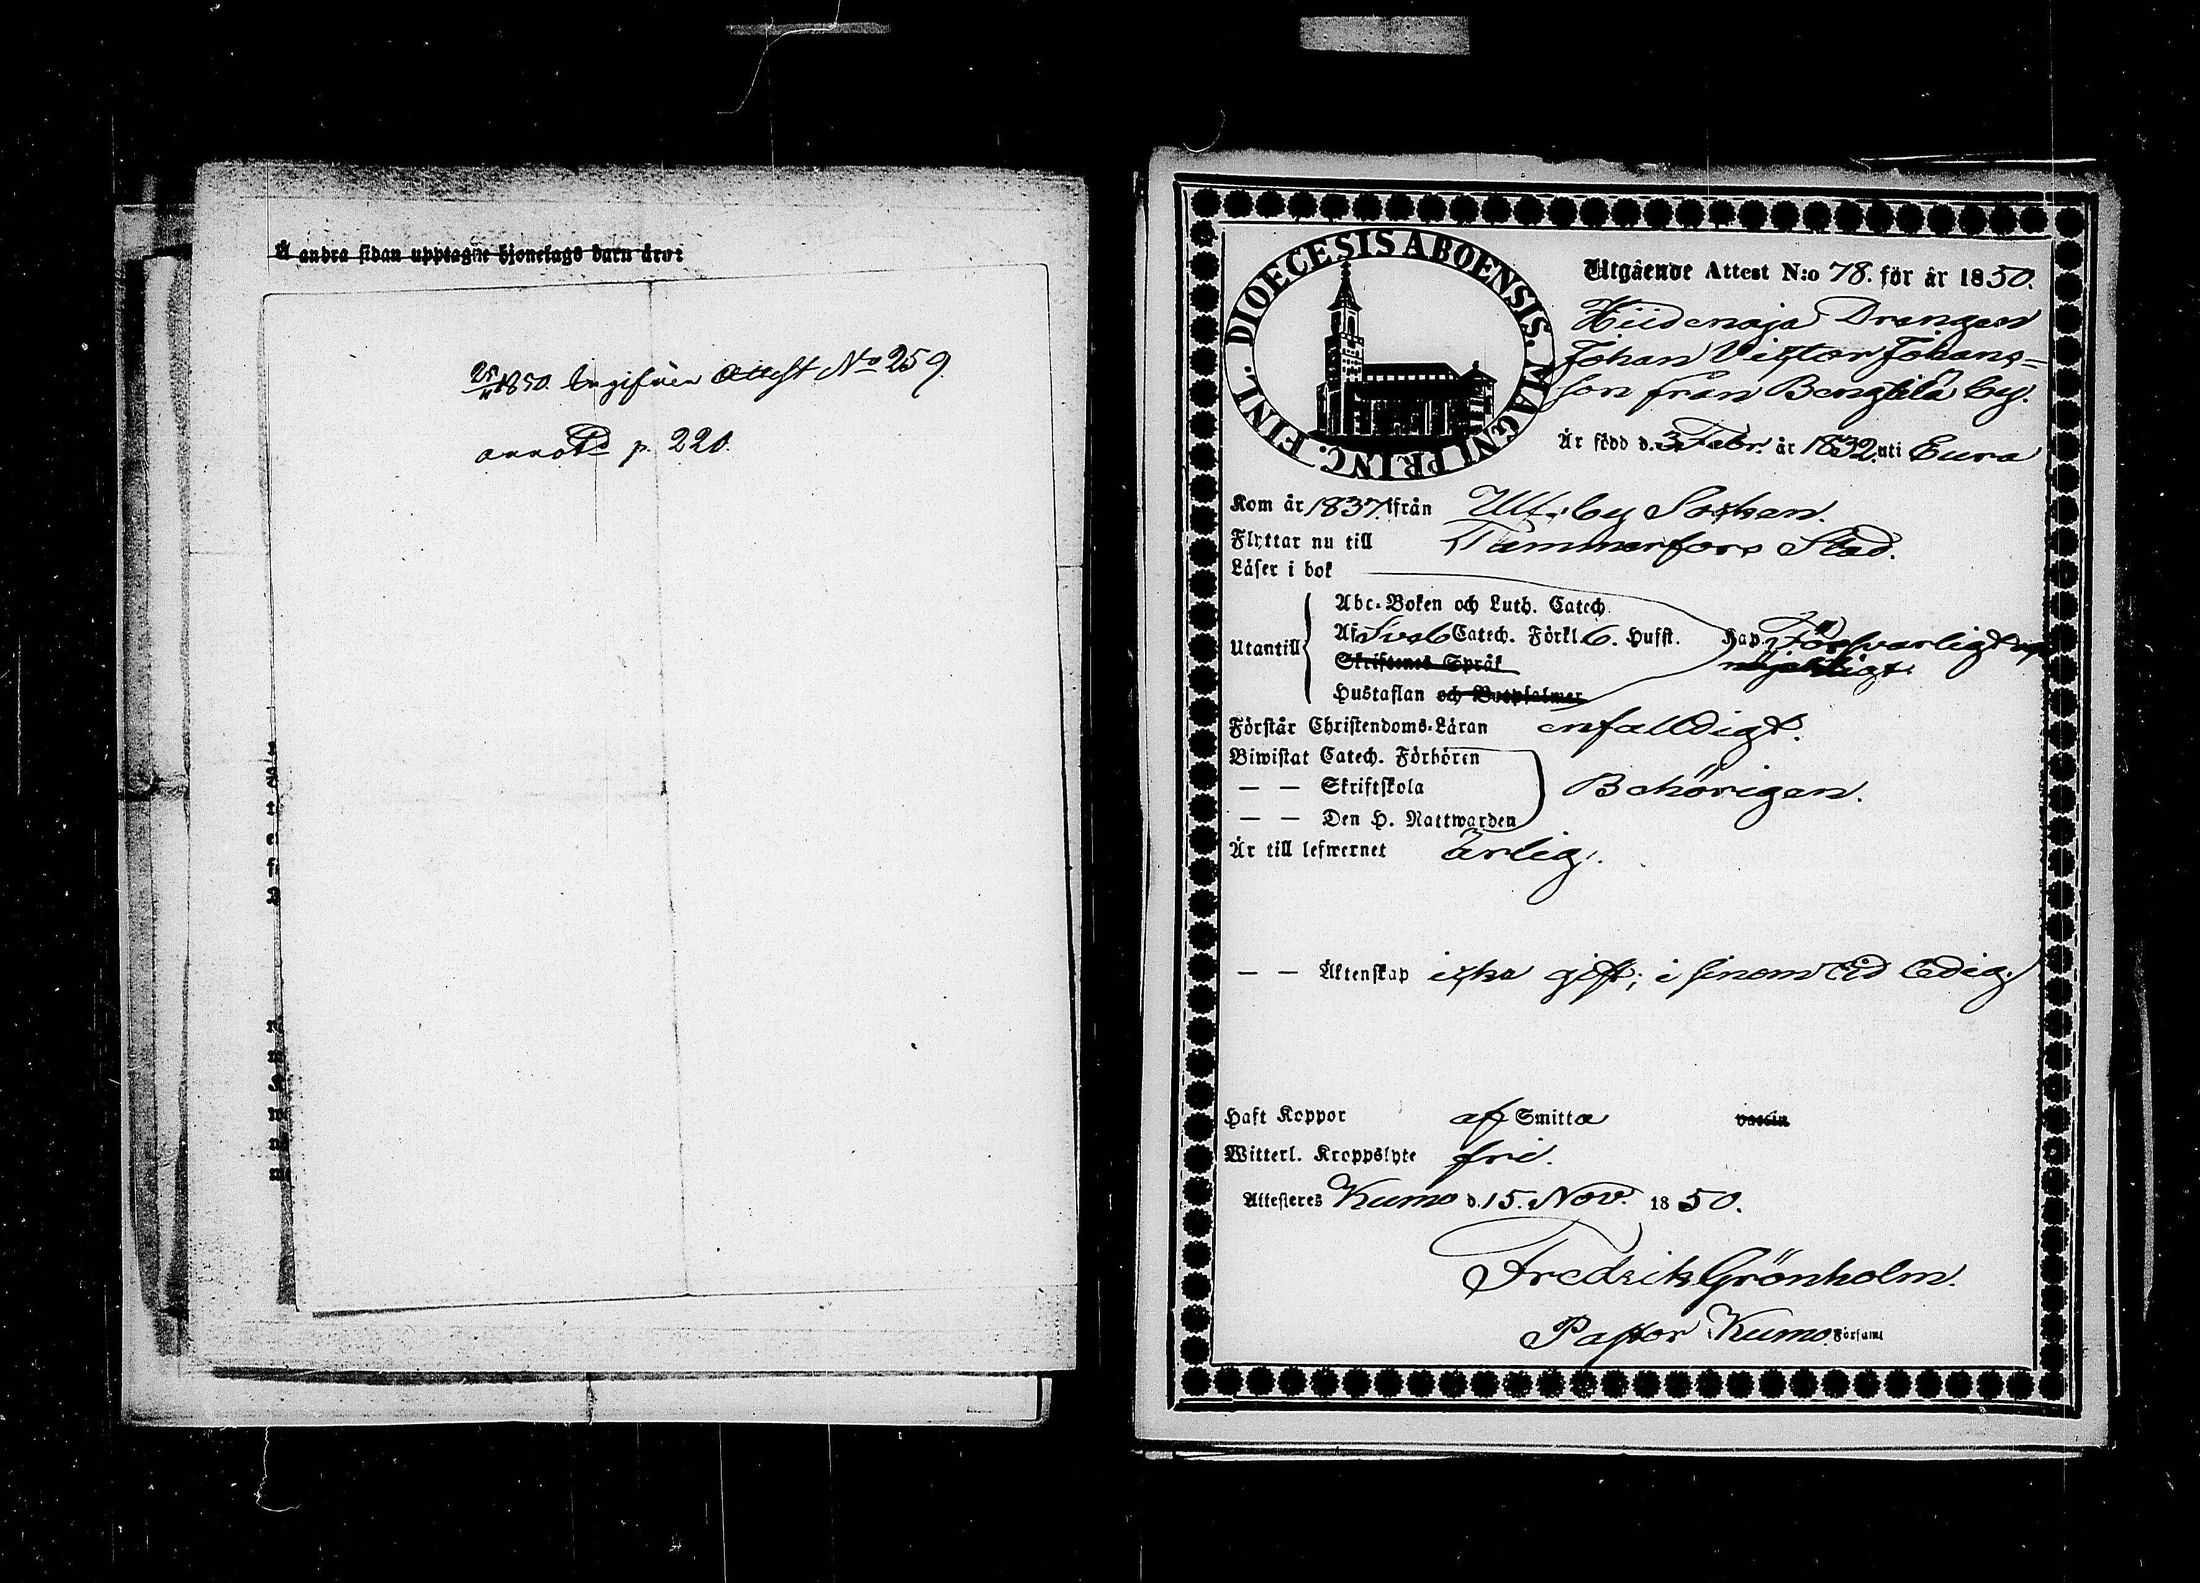 Å andra sidan upptagne hjonelags barn äro:
25/11 1850. Ingifven Attest No 259
annot p. 220.
DIOECESIS ABOENSIS. MAGNI PRINC. FINL.
Utgående Attest N:o 78. för år 1850.
Drängen
Johan Victor Johans-
son från Bengtilä by.
Är född d. 3 Febr. år 1832 uti Eura
Kom år 1837 ifrån Ulfsby Socken.
Flyttar nu till Tammerfors Stad.
Läser i bok
Abc-Boken och Luth. Catech.
Utantill Af Catech. Förkl. 6. Hufst. Kap. Försvarligt
Skriftenes Språk
Hustaflan och Botpsalmer
Förstår Christendoms-Läran enfalldigt.
Biwistat Catech. Förhören
— — Skriftskola Behörigen.
— — Den H. Nattwarden
Är till lefwernet ärlig.
— — Äktenskap icke gift; i sinom tid ledig.
Haft Koppor af Smitta vaccin
Witterl. Kroppslyte fri.
Attesteres Kumo d. 15. Nov. 1850.
Fredrik Grönholm.
Pastor i Kumo Församl